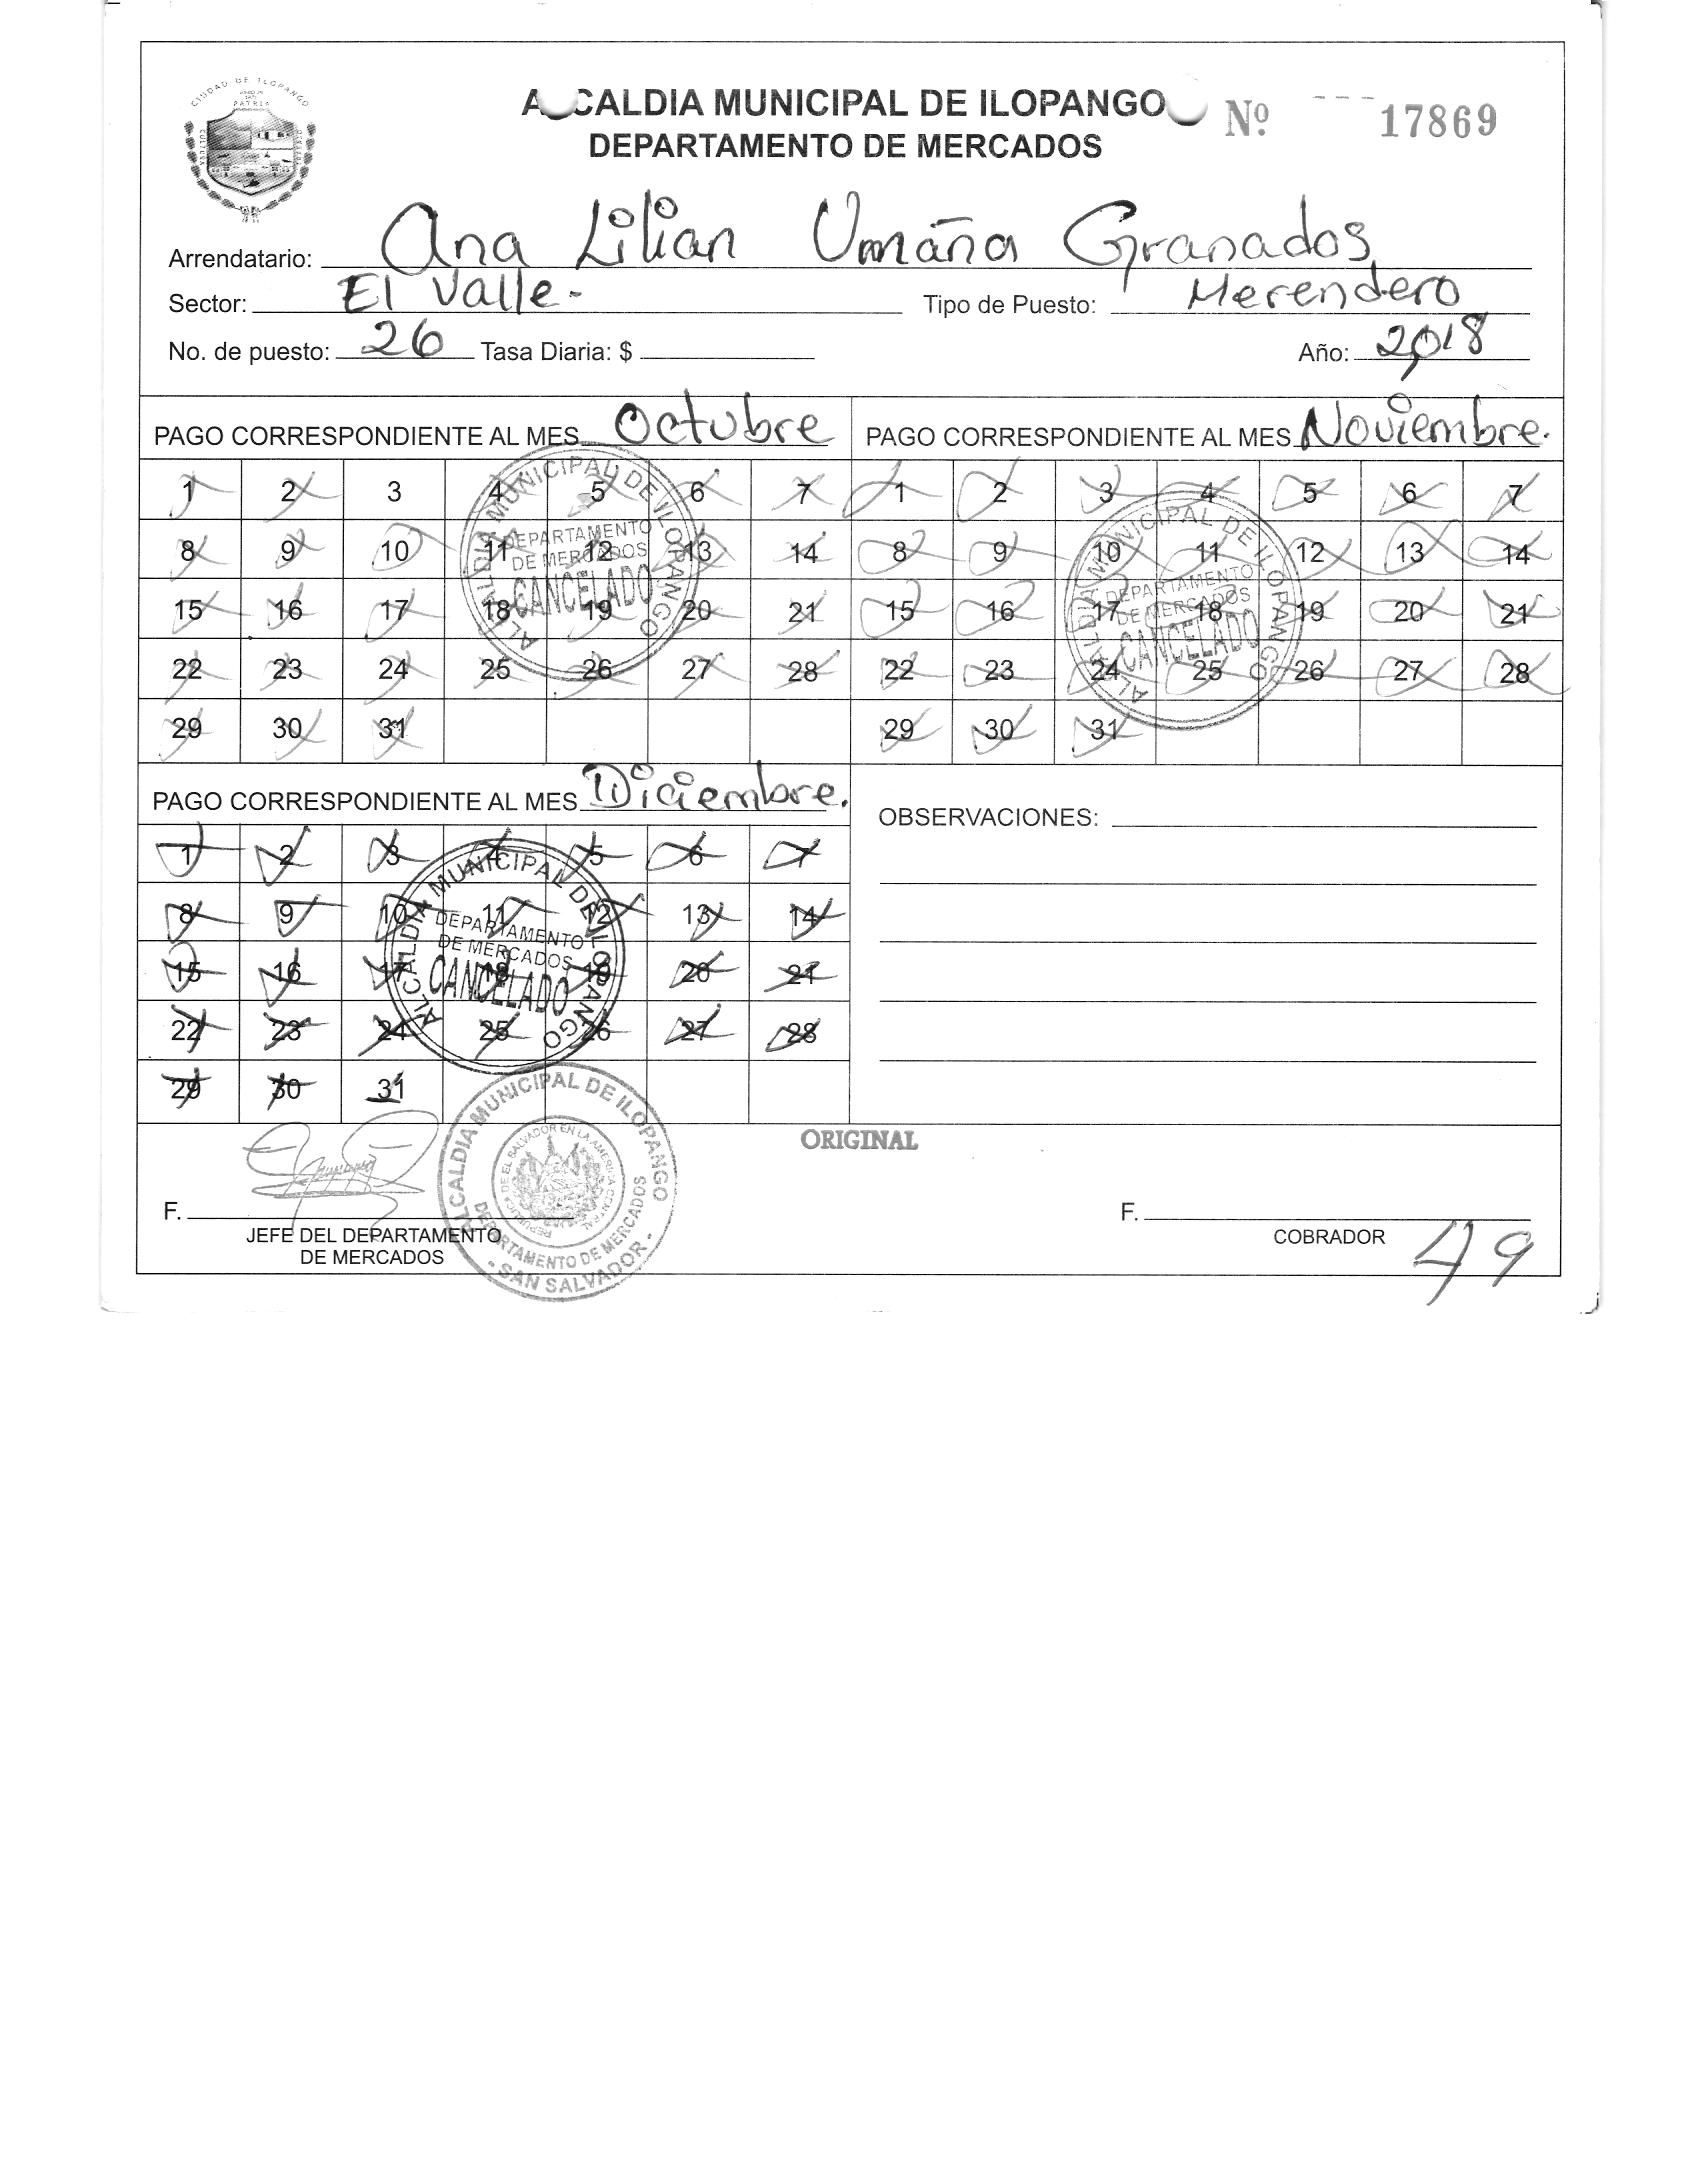 CIUDAD DE ILOPANGO
PATRIA
CULTURA
ALCALDIA MUNICIPAL DE ILOPANGO
Nº 17869
DEPARTAMENTO DE MERCADOS
Arrendatario: Ana Lilian Umaña Granados
Sector: El Valle- Tipo de Puesto: Merendero
No. de puesto: 26 Tasa Diaria: $ Año: 2018
PAGO CORRESPONDIENTE AL MES Octubre
1 2 3 4 5 6 7
8 9 10 11 12 13 14
15 16 17 18 19 20 21
22 23 24 25 26 27 28
29 30 31
ALCALDIA MUNICIPAL DE ILOPANGO
DEPARTAMENTO
DE MERCADOS
CANCELADO
PAGO CORRESPONDIENTE AL MES Noviembre.
1 2 3 4 5 6 7
8 9 10 11 12 13 14
15 16 17 18 19 20 21
22 23 24 25 26 27 28
29 30 31
ALCALDIA MUNICIPAL DE ILOPANGO
DEPARTAMENTO
DE MERCADOS
CANCELADO
PAGO CORRESPONDIENTE AL MES Diciembre.
1 2 3 4 5 6 7
8 9 10 11 12 13 14
15 16 17 18 19 20 21
22 23 24 25 26 27 28
29 30 31
ALCALDIA MUNICIPAL DE ILOPANGO
DEPARTAMENTO
DE MERCADOS
CANCELADO
OBSERVACIONES:
ORIGINAL
F.
JEFE DEL DEPARTAMENTO
DE MERCADOS
ALCALDIA MUNICIPAL DE ILOPANGO
REPUBLICA DE EL SALVADOR EN LA AMERICA CENTRAL
DEPARTAMENTO DE MERCADOS
- SAN SALVADOR -
F.
COBRADOR
49